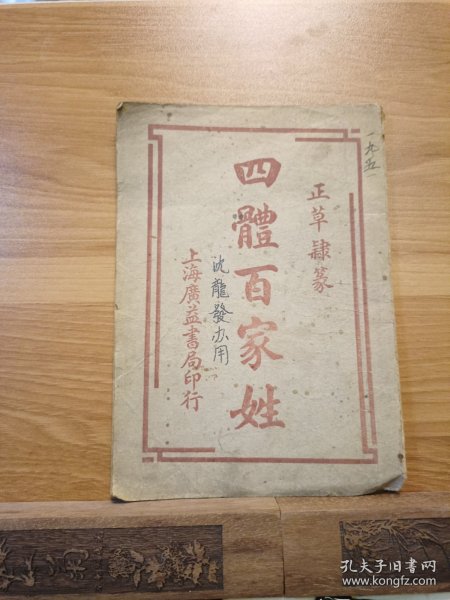 一九五
正草隸篆
四體百家姓
沈龍發办用
上海廣益書局印行
孔夫子旧书网
www.kongfz.com